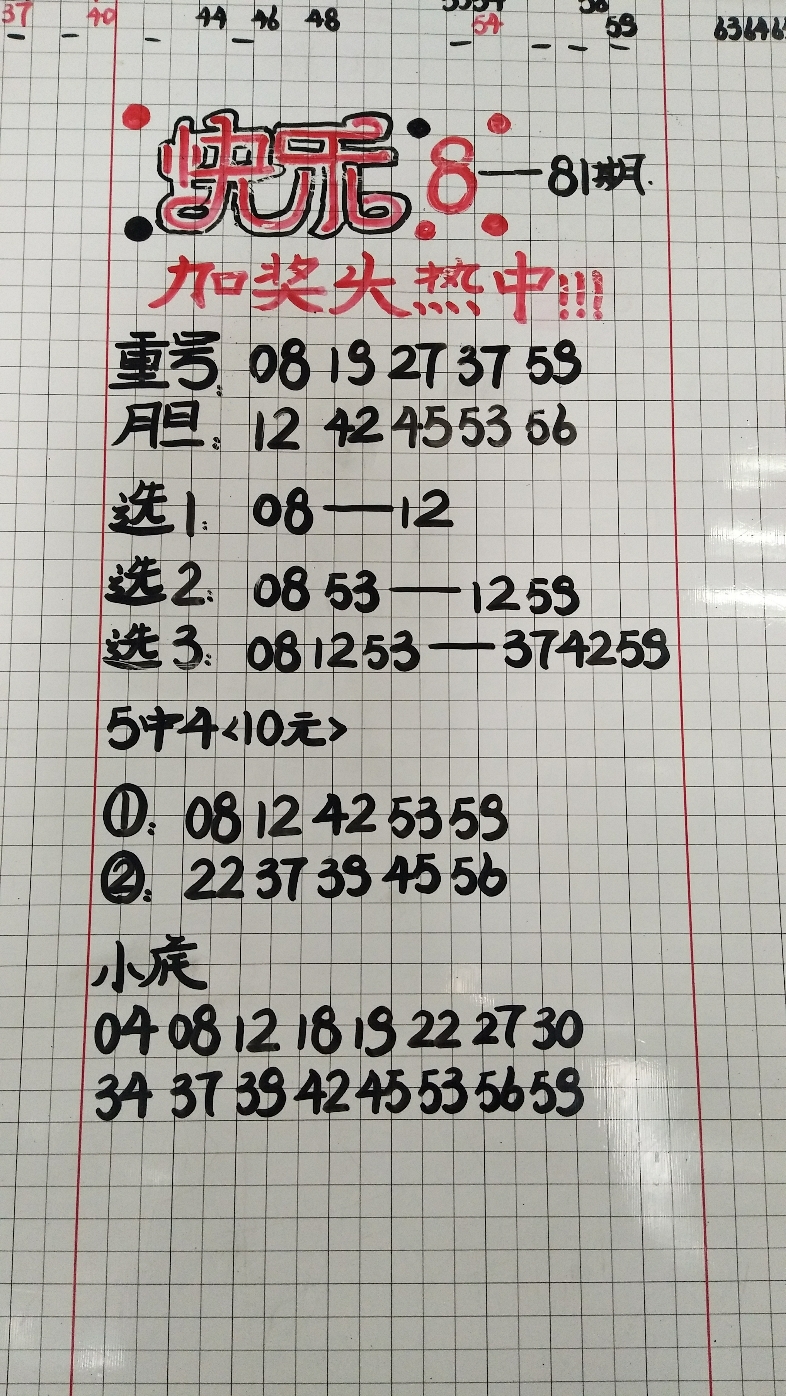 37 40 44 46 48 54 59
快乐8—81期.
加奖火热中!!!
重号: 08 19 27 37 59
胆: 12 42 45 53 56
选1: 08—12
选2: 08 53—12 59
选3: 08 12 53—37 42 59
5中4<10元>
①: 08 12 42 53 59
②: 22 37 39 45 56
小底
04 08 12 18 19 22 27 30
34 37 39 42 45 53 56 59